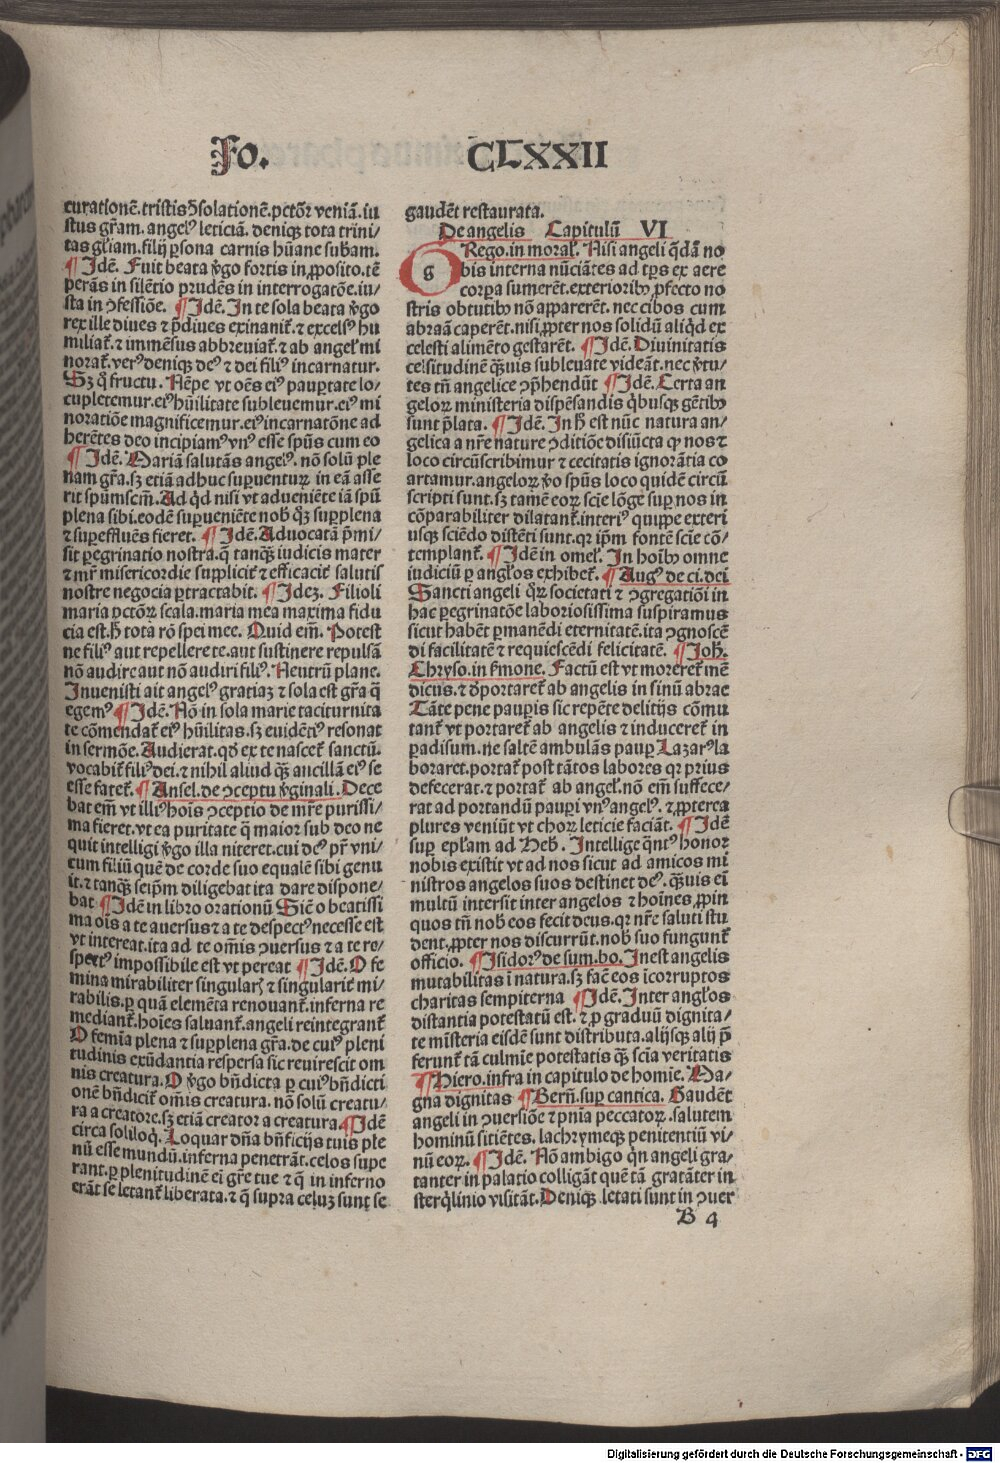 Fo. CLXXII
curationē.tristis ꝯsolationē.pctōr veniā.iu
stus gr̄am.angelꝰ leticiā.deniqꝫ tota trini/
tas gl̄iam.filij ꝑsona carnis hūane sub̄am.
¶ Idē. Fuit beata v̄go fortis in ꝓposito.tē
perās in silētio prudēs in interrogatōe.iu/
sta in ꝯfessiōe. ¶ Idē. In te sola beata v̄go
rex ille diues ⁊ p̄diues exinanit᷑.⁊ excelsꝰ hu
miliat᷑.⁊ immēsus abbreuiat᷑.⁊ ab angel᷑ mi
norat᷑.verꝰ deniqꝫ deꝰ ⁊ dei filiꝰ incarnatur.
Sꝫ q̊ fructu. Nēpe vt oēs eiꝰ pauꝑtate lo/
cupletemur.eiꝰ hūilitate subleuemur.eiꝰ mi
noratiōe magnificemur.eiꝰ incarnatōne ad
herētes deo incipiamꝰ vnꝰ esse spūs cum eo
¶ Idē. Mariā salutās angelꝰ.nō solū ple
nam gr̄a.sꝫ etiā adhuc suꝑuenturꝫ in eā asse
rit spūmscm̄. Ad qd̄ nisi vt adueniēte iā spū
plena sibi.eodē suꝑueniēte nob̄ qꝫ suꝑplena
⁊ suꝑeffluēs fieret. ¶ Idē. Aduocatā p̄mi/
sit ꝑegrinatio nostra.q̄ tanqꝫ iudicis mater
⁊ mr̄ misericordie supplicit᷑ ⁊ efficacit᷑ salutis
nostre negocia ꝑtractabit. ¶ Ideꝫ. Filioli
maria pctōꝝ scala.maria mea maxima fidu
cia est.h̄ tota rō spei mee. Quid em̄. Potest
ne filiꝰ aut repellere te.aut sustinere repulsā
nō audire aut nō audiri filiꝰ. Neutrū plane.
Inuenisti ait angelꝰ gratiaꝫ ⁊ sola est gr̄a q̄
egemꝰ ¶ Idē. Nō in sola marie taciturnita
te cōmendat᷑ eiꝰ hūilitas.sꝫ euidētiꝰ resonat
in sermōe. Audierat.qd̄ ex te nascet᷑ sanctū.
vocabit᷑ filiꝰ dei.⁊ nihil aliud qꝫ ancillā eiꝰ se
esse fatet᷑. ¶ Ansel.de ꝯceptu v̄ginali. Dece
bat em̄ vt illiꝰ hoīs ꝯceptio de mr̄e purissi/
ma fieret.vt ea puritate q̄ maior sub deo ne
quit intelligi v̄go illa niteret.cui deꝰ pr̄ vni/
cum filiū quē de corde suo equalē sibi genu
it.⁊ tanqꝫ seip̄m diligebat ita dare dispone/
bat ¶ Idē in libro orationū Siē o beatissi
ma oīs a te auersus ⁊ a te despectꝰ necesse est
vt intereat.ita ad te om̄is ꝯuersus ⁊ a te re/
spectꝰ impossibile est vt pereat ¶ Idē. O fe
mina mirabiliter singularꝭ ⁊ singularit᷑ mi/
rabilis.ꝑ quā elemēta renouant᷑.inferna re
mediant᷑.hoīes saluant᷑.angeli reintegrant᷑
O femia plena ⁊ suꝑplena gr̄a.de cuiꝰ pleni
tudinis exūdantia respersa sic reuirescit om
nis creatura. O v̄go bn̄dicta ꝑ cuiꝰ bn̄dicti
onē bn̄dicit᷑ om̄is creatura.nō solū creatu/
ra a creatore.sꝫ etiā creator a creatura. ¶ Idē
circa soliloq̊. Loquar dn̄a bn̄ficijs tuis ple
nū esse mundū.inferna penetrāt.celos supe
rant.ꝑ plenitudinē ei gr̄e tue ⁊ q̄ in inferno
erāt se letant᷑ liberata.⁊ q̄ supra celuꝫ sunt se
gaudēt restaurata.
De angelis Capitulū VI
G Rego.in moral᷑. Nisi angeli q̄dā no
g bis interna nūciātes ad tp̄s ex aere
corꝑa sumerēt.exterioribꝰ ꝓfecto no
stris obtutibꝰ nō apparerēt.nec cibos cum
abraā caperēt.nisi ꝓpter nos solidū aliqd̄ ex
celesti alimēto gestarēt. ¶ Idē. Diuinitatis
celsitudinē qꝫuis subleuate videāt.nec v̄tu/
tes tn̄ angelice ꝯp̄hendūt ¶ Idē. Certa an
geloꝝ ministeria dispēsandis qͥbusqꝫ gētibꝰ
sunt p̄lata. ¶ Idē. In h̄ est nūc natura an/
gelica a nr̄e nature ꝯditiōe disiūcta qꝛ nos ⁊
loco circūscribimur ⁊ cecitatis ignorātia co
artamur.angeloꝝ v̄o spūs loco quidē circū
scripti sunt.sꝫ tamē eoꝝ scie lōge suꝑ nos in
cōparabiliter dilatant᷑.interiꝰ quippe exteri
usqꝫ sciēdo distēti sunt.qꝛ ip̄m fontē scie cō/
templant᷑. ¶ Idē in omel᷑. In hoībꝰ omne
iudiciū ꝑ angl̄os exhibet᷑. ¶ Augꝰ de ci.dei
Sancti angeli qͦꝝ societati ⁊ ꝯgregatiōi in
hac ꝑegrinatōe laboriosissima suspiramus
sicut habēt ꝑmanēdi eternitatē.ita ꝯgnoscē
di facilitatē ⁊ requiescēdi felicitatē. ¶ Ioh̄.
Chryso.in s̄mone. Factū est vt moreret᷑ mē
dicus.⁊ d̄portaret᷑ ab angelis in sinū abrae
Tāte pene pauꝑis sic repēte delitijs cōmu
tant᷑ vt portaret᷑ ab angelis ⁊ induceret᷑ in
ꝑadisum.ne saltē ambulās pauꝑ Lazarꝰ la
boraret.portat᷑ post tātos labores qꝛ prius
defecerat.⁊ portat᷑ ab angel᷑.nō em̄ suffece/
rat ad portandū pauꝑi vnꝰ angelꝰ.⁊ ꝓpterea
plures veniūt vt choꝝ leticie faciāt. ¶ Idē
suꝑ epl̄am ad Heb̄. Intellige qͣntꝰ honor
nobis existit vt ad nos sicut ad amicos mi
nistros angelos suos destinet deꝰ.qꝫuis ei
multū intersit inter angelos ⁊ hoīnes.ꝓpin
quos tn̄ nob̄ eos fecit deus.qꝛ nr̄e saluti stu
dent.ꝓpter nos discurrūt.nob̄ suo fungunt᷑
officio. ¶ Isidorꝰ de sum.bo. Inest angelis
mutabilitas ī natura.sꝫ facē eos icorruptos
charitas sempiterna ¶ Idē. Inter angl̄os
distantia potestatū est.⁊ ꝓ graduū dignita/
te mīsteria eisdē sunt distributa.alijsqꝫ alij p̄
ferunt᷑ tā culmīe potestatis qꝫ scīa veritatis
¶ Hiero.infra in capitulo de homīe. Ma/
gna dignitas ¶ Bern̄.suꝑ cantica. Gaudēt
angeli in ꝯuersiōe ⁊ pn̄ia peccatoꝝ.salutem
hominū sitiētes.lachrymeqꝫ penitentiū vi/
nū eoꝝ. ¶ Idē. Nō ambigo qͥn angeli gra/
tanter in palatio colligāt quē tā gratāter in
sterqͥlinio visitāt. Deniqꝫ letati sunt in ꝯuer
B 4
Digitalisierung gefördert durch die Deutsche Forschungsgemeinschaft - DFG